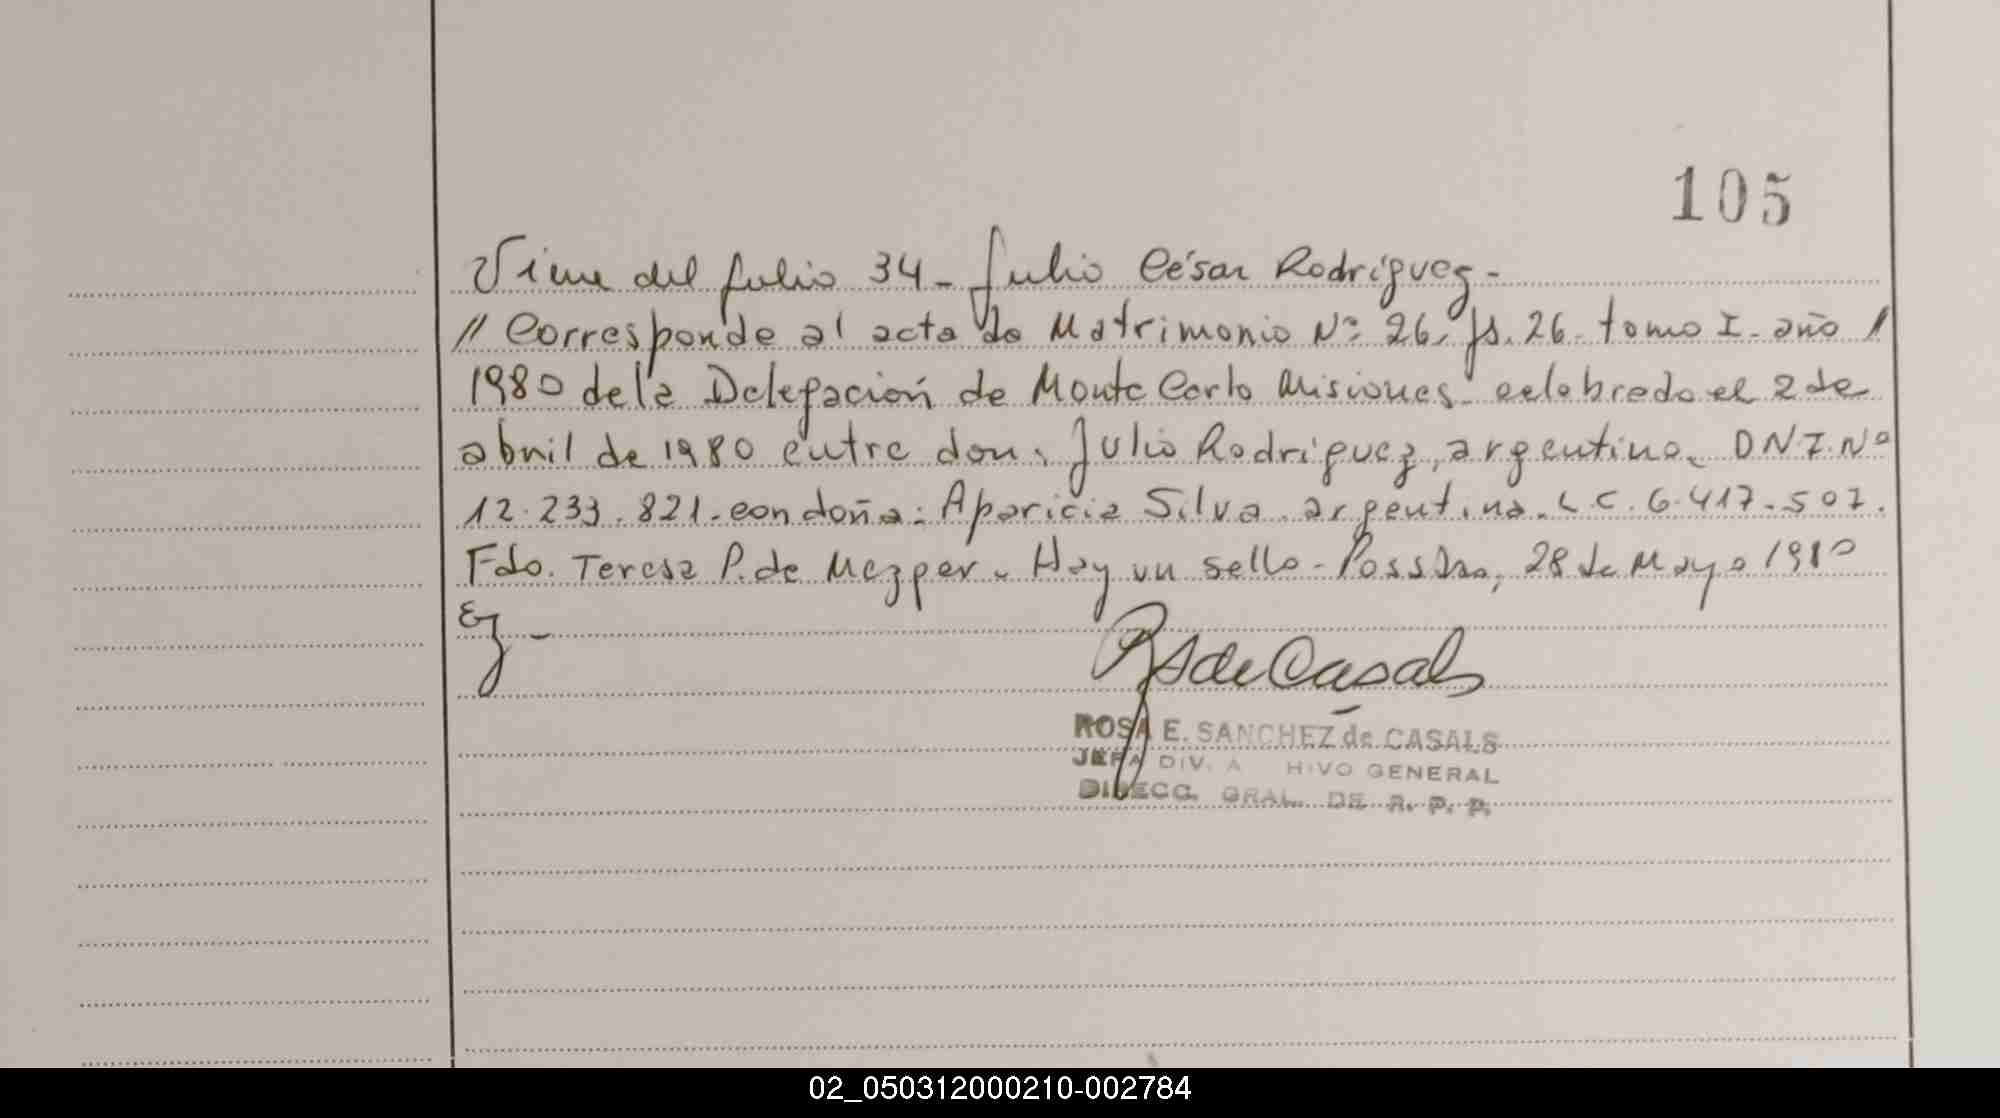 105
Viene del folio 34 - Julio César Rodríguez -
// Corresponde al acta de Matrimonio Nº 26. fs. 26. tomo I. año /
1980 de la Delegación de Monte Carlo Misiones. celebrado el 2 de
abril de 1980 entre don: Julio Rodríguez, argentino. DNI. Nº
12.233.821. con doña: Aparicia Silva. argentina. L.C. 6.417.507.
Fdo. Teresa P. de - Hay un sello - 28 de Mayo 1980
RS de Casals
ROSA E. SANCHEZ de CASALS
JEFA DIV. A HIVO GENERAL
DIRECC. GRAL. DE R. P. P.
02_050312000210-002784